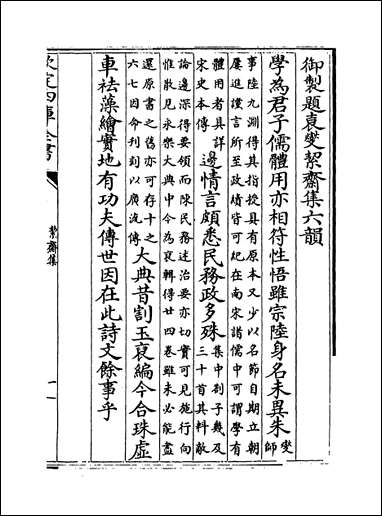 御製題袁燮絜齋集六韻
學為君子儒體用亦相符性悟雖宗陸身名未異朱燮師
事陸九淵得其指授具有原本又少以名節自期立朝
屢進讜言所至政績皆可紀在南宋諸儒中可謂學有
體用者具詳宋史本傳邊情言頗悉民務政多殊集中劄子幾及三十首其料敵
論邊深得要領而陳民務述治要亦切實可見施行向
惟散見永樂大典中今為裒輯得廿四卷雖未必能盡
還原書之舊亦可存十之六七因命刋刻以廣流傳大典昔割玉裒編今合珠虛
車祛藻繪實地有功夫傳世因在此詩文餘事乎
欽定四庫全書
絜齋集
一